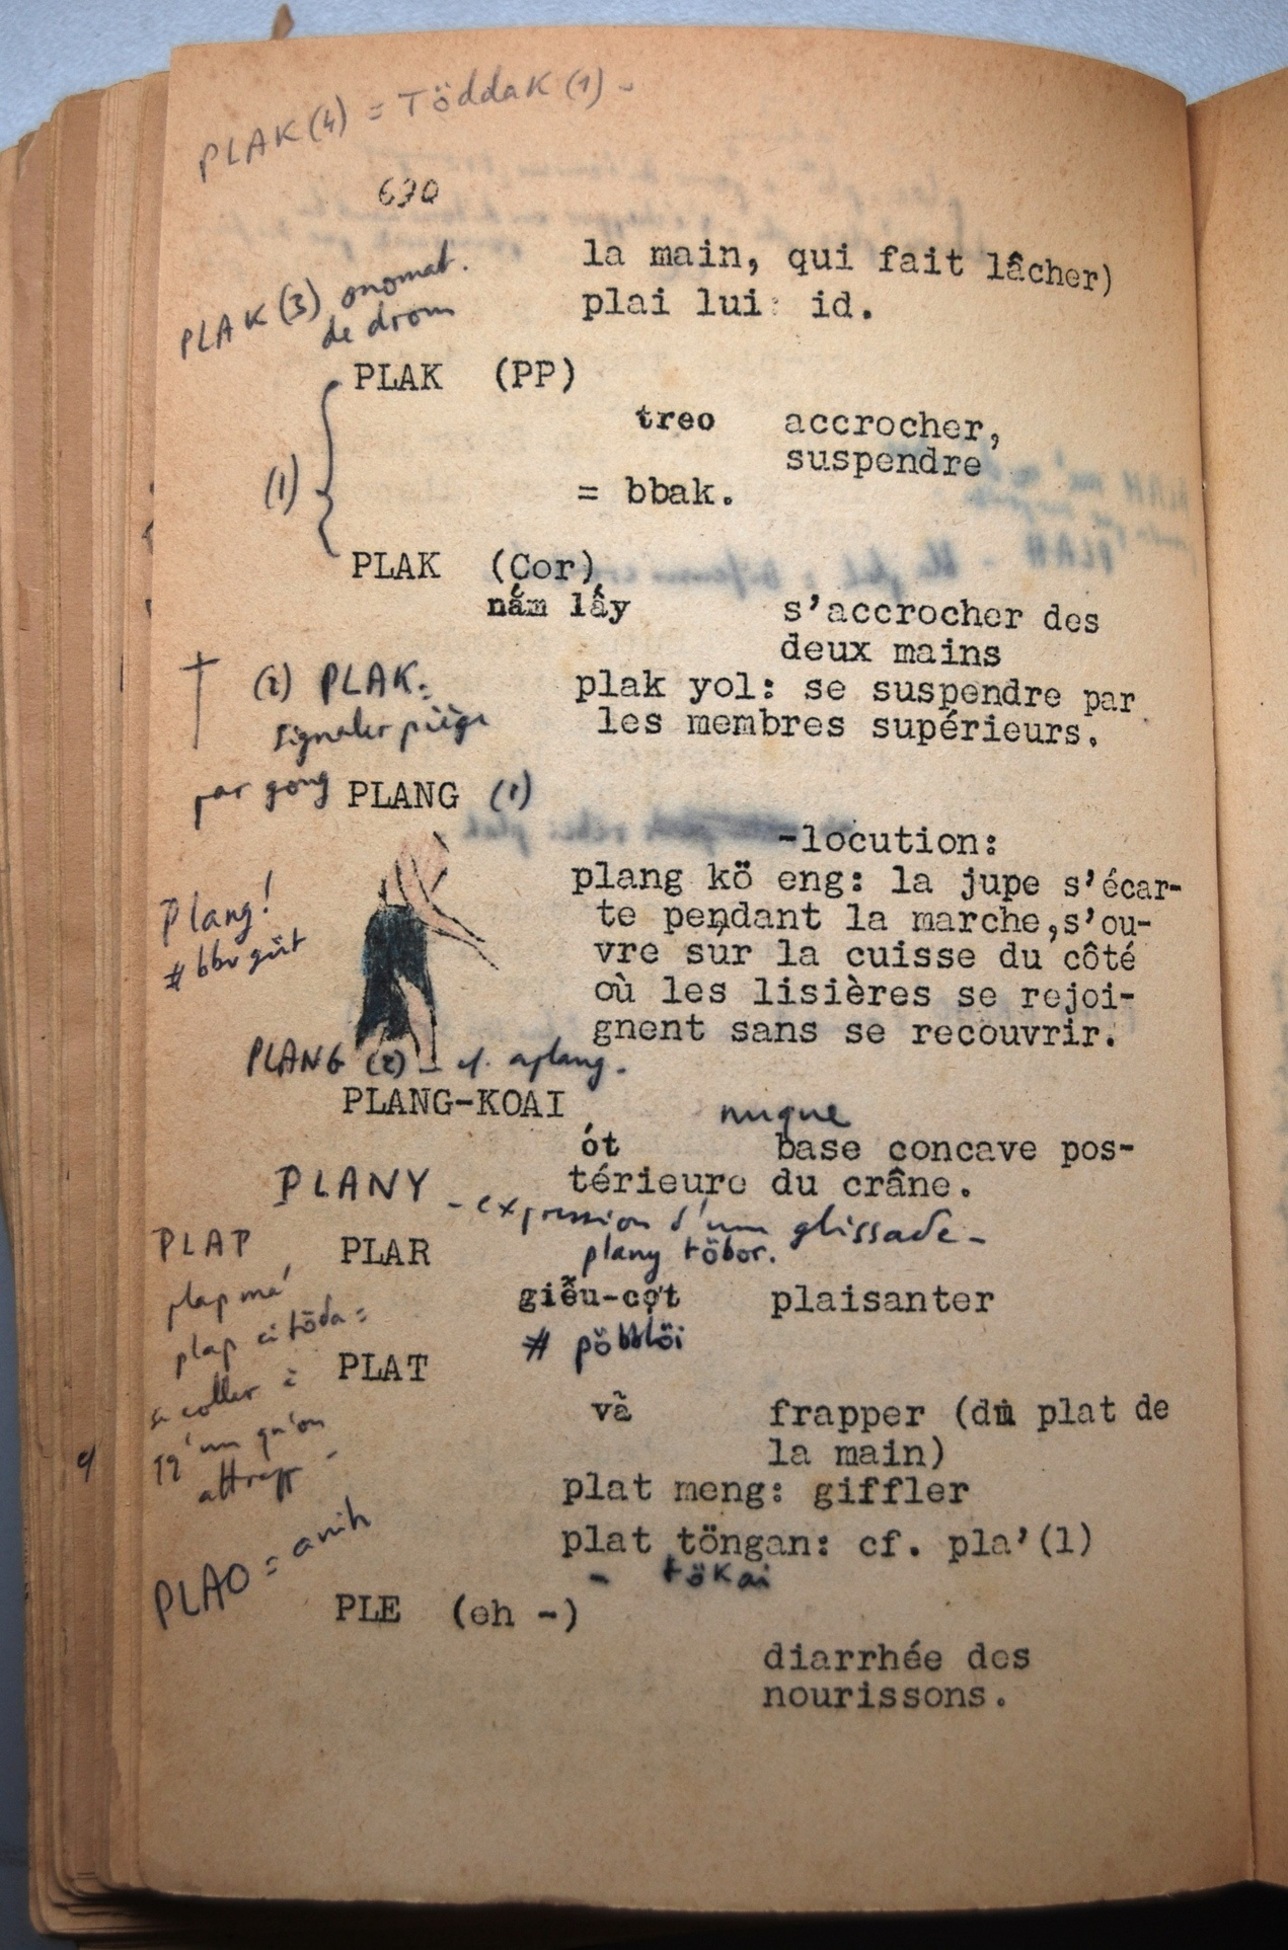 PLAK(4) = Töddak (1) -
630
la main, qui fait lâcher)
plai lui: id.
PLAK (3) onomat.
de drom
PLAK (PP)
treo accrocher,
suspendre
= bbak.
(1)
PLAK (Cor)
nắm lấy s'accrocher des
deux mains
plak yol: se suspendre par
les membres supérieurs.
(2) PLAK:
signaler piège
par gong
PLANG (1)
-locution:
plang kö eng: la jupe s'écar-
te pendant la marche,s'ou-
vre sur la cuisse du côté
où les lisières se rejoi-
gnent sans se recouvrir.
Plang!
PLANG (2) cf. aplang.
PLANG-KOAI
nuque
ót base concave pos-
térieure du crâne.
PLANY - expression d'une glissade -
plany töbor.
PLAP
plap má
plap ci töda =
se coller à
qq'un qu'on
attrape -
PLAR
giễu-cợt plaisanter
PLAT
vã frapper (du plat de
la main)
plat meng: giffler
plat töngan: cf. pla'(1)
- tökai
PLAO =
PLE (eh -)
diarrhée des
nourissons.